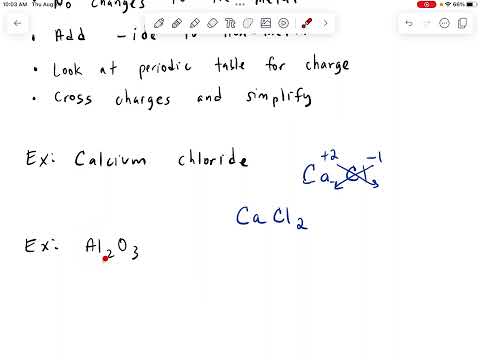 10:03 AM Thu Aug
66%
No changes to the metal
• Add -ide to non-metal
• Look at periodic table for charge
• Cross charges and simplify
Ex: Calcium chloride
+2 -1
Ca Cl
CaCl₂
Ex: Al₂O₃